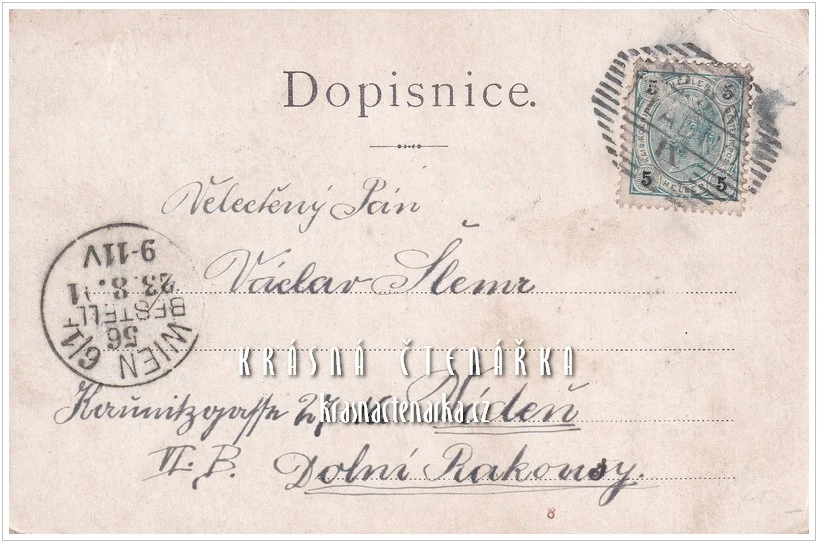 Dopisnice.
5 5
5 HELLER 5
Velectěný Pán
Václav Šlemr
WIEN 6/1
56
BESTELLT
23.8. 1
9-11V
KRÁSNÁ ČTENÁŘKA
Kaunitzgasse 27, Vídeň
krasnactenarka.cz
VI. B. Dolní Rakousy.
8